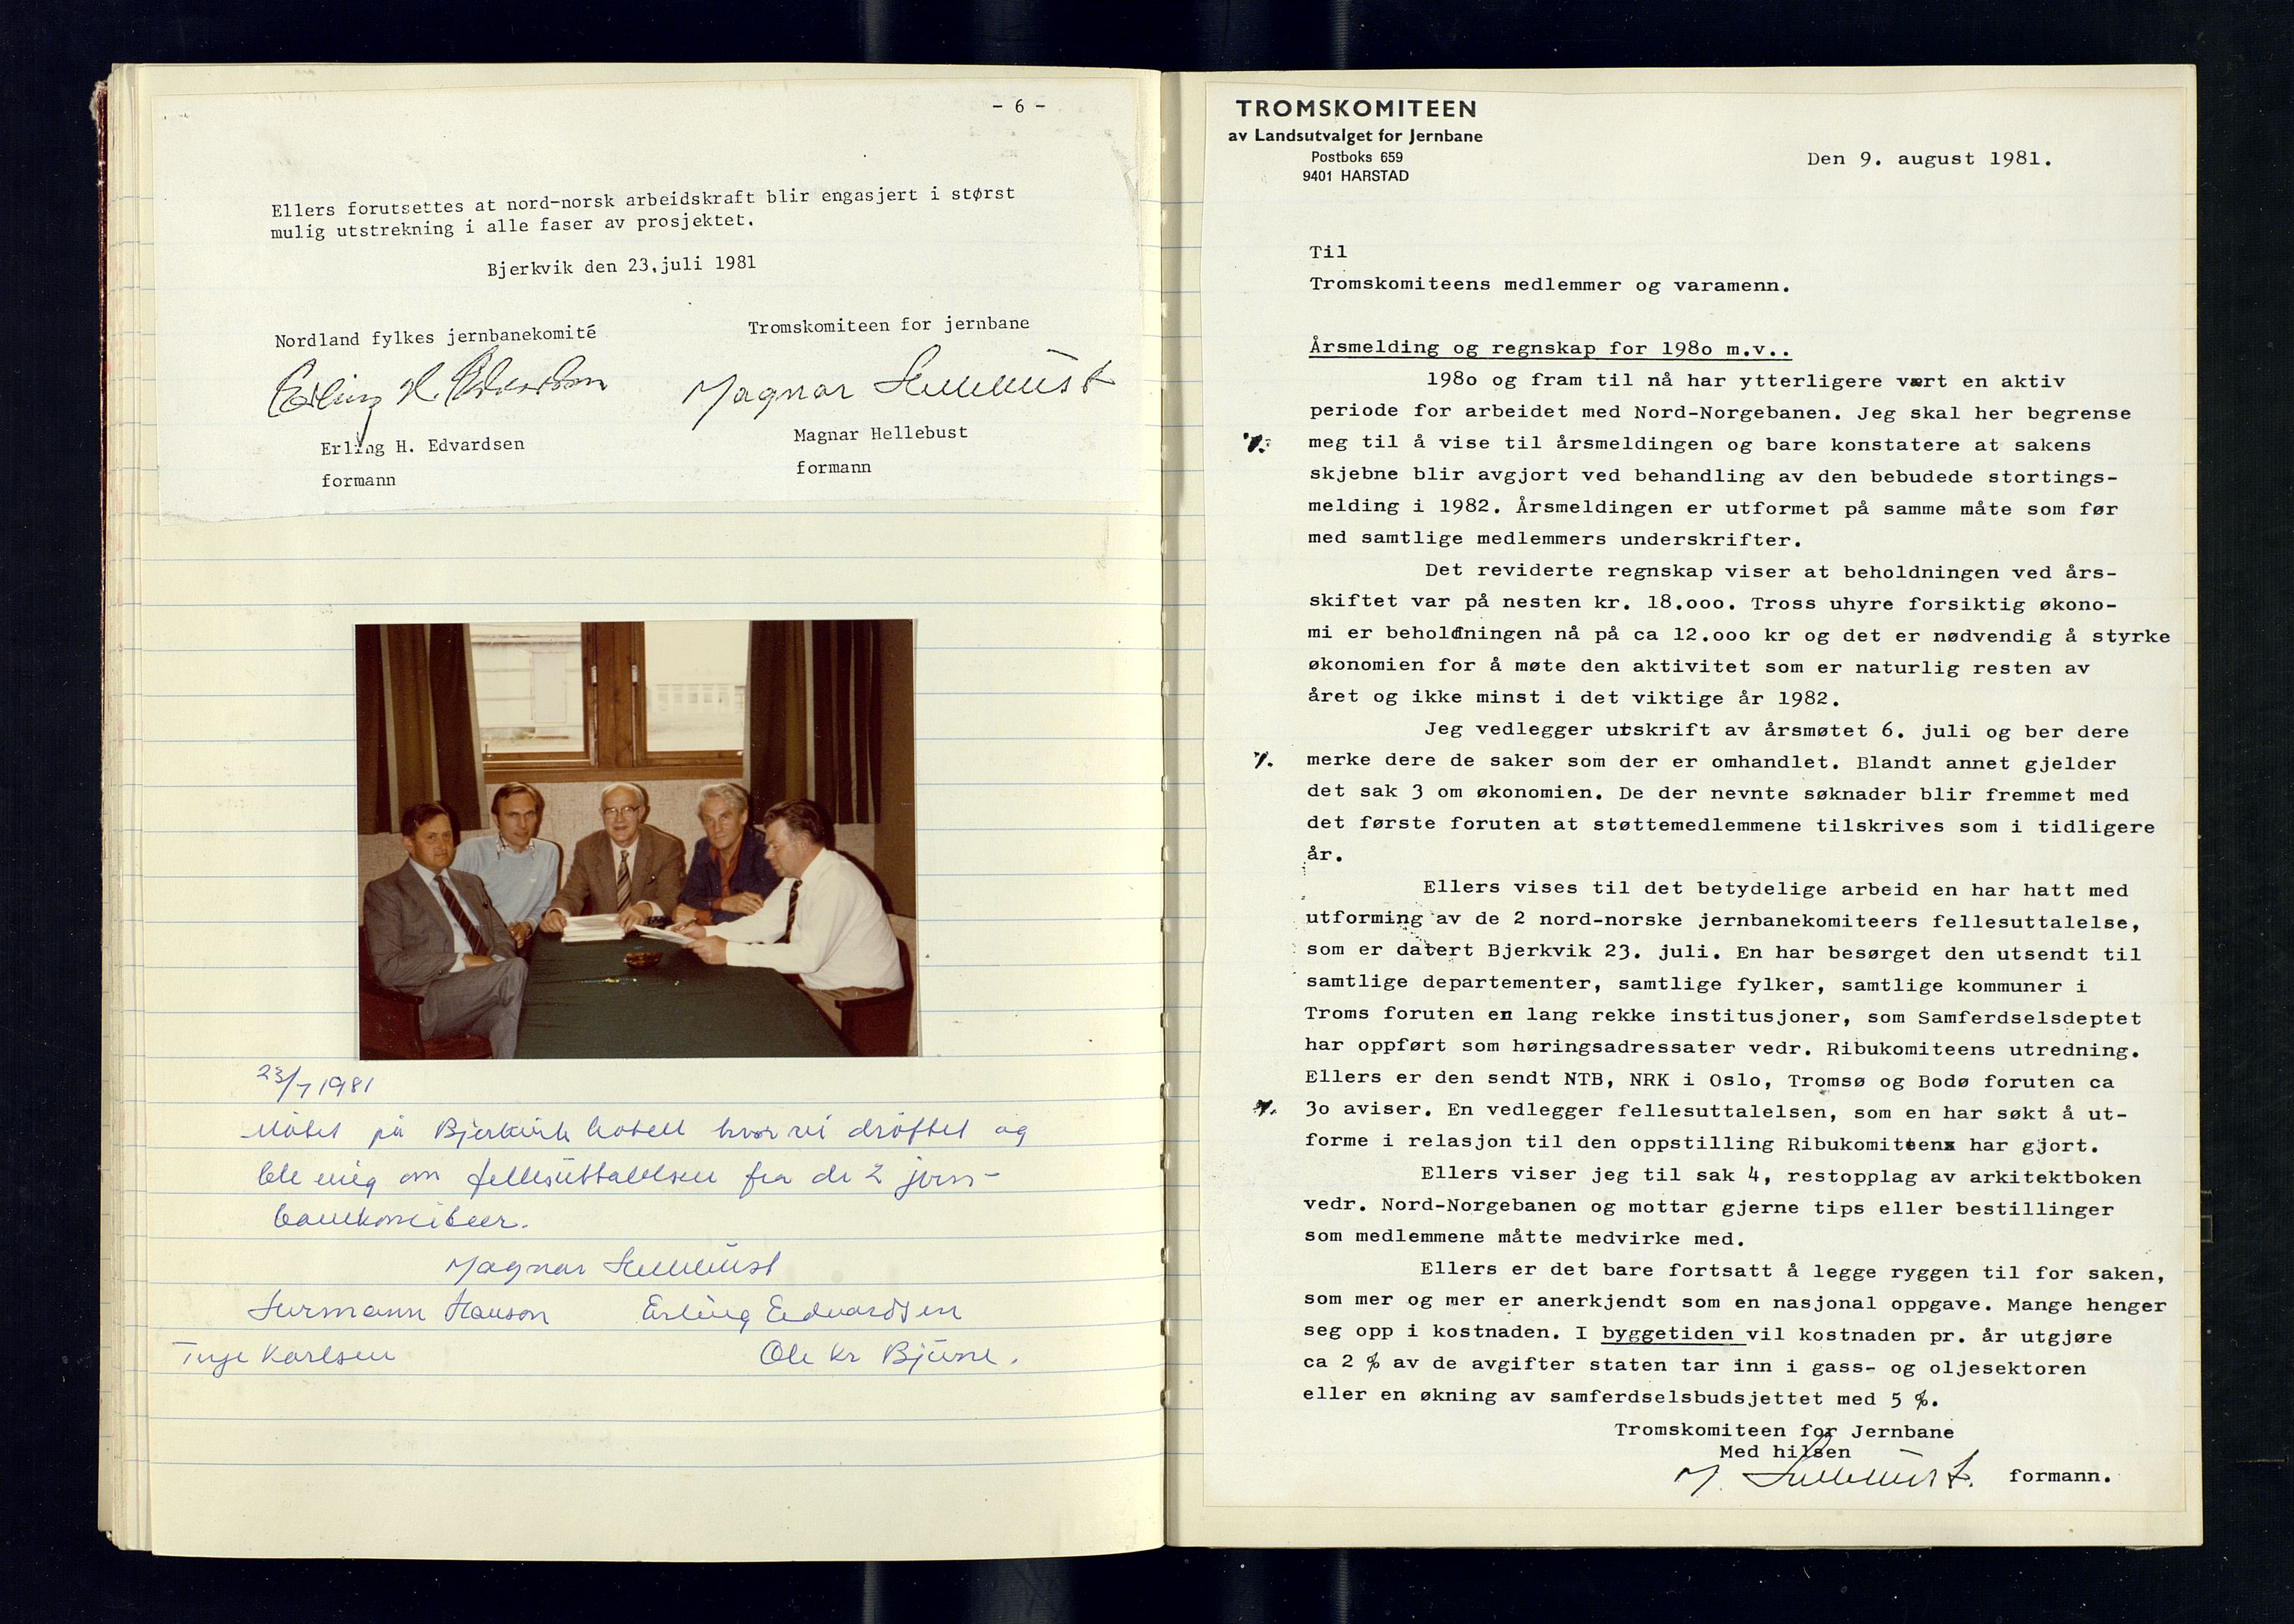 - 6 -
Ellers forutsettes at nord-norsk arbeidskraft blir engasjert i størst
mulig utstrekning i alle faser av prosjektet.
Bjerkvik den 23.juli 1981
Nordland fylkes jernbanekomité
Erling H. Edvardsen
Erling H. Edvardsen
formann
Tromskomiteen for jernbane
Magnar Hellebust
Magnar Hellebust
formann
23/7 1981
Møtet på Bjerkvik hotell hvor vi drøftet og
ble enig om fellesuttalelsen fra de 2 jern-
banekomiteer.
Magnar Hellebust
Hermann Hanson Erling Edvardsen
Inge Karlsen Ole Kr
TROMSKOMITEEN
av Landsutvalget for Jernbane
Postboks 659
9401 HARSTAD
Den 9. august 1981.
Til
Tromskomiteens medlemmer og varamenn.
Årsmelding og regnskap for 198o m.v..
198o og fram til nå har ytterligere vært en aktiv
periode for arbeidet med Nord-Norgebanen. Jeg skal her begrense
meg til å vise til årsmeldingen og bare konstatere at sakens
skjebne blir avgjort ved behandling av den bebudede stortings-
melding i 1982. Årsmeldingen er utformet på samme måte som før
med samtlige medlemmers underskrifter.
Det reviderte regnskap viser at beholdningen ved års-
skiftet var på nesten kr. 18.ooo. Tross uhyre forsiktig økono-
mi er beholdningen nå på ca 12.ooo kr og det er nødvendig å styrke
økonomien for å møte den aktivitet som er naturlig resten av
året og ikke minst i det viktige år 1982.
Jeg vedlegger utskrift av årsmøtet 6. juli og ber dere
merke dere de saker som der er omhandlet. Blandt annet gjelder
det sak 3 om økonomien. De der nevnte søknader blir fremmet med
det første foruten at støttemedlemmene tilskrives som i tidligere
år.
Ellers vises til det betydelige arbeid en har hatt med
utforming av de 2 nord-norske jernbanekomiteers fellesuttalelse,
som er datert Bjerkvik 23. juli. En har besørget den utsendt til
samtlige departementer, samtlige fylker, samtlige kommuner i
Troms foruten en lang rekke institusjoner, som Samferdselsdeptet
har oppført som høringsadressater vedr. Ribukomiteens utredning.
Ellers er den sendt NTB, NRK i Oslo, Tromsø og Bodø foruten ca
3o aviser. En vedlegger fellesuttalelsen, som en har søkt å ut-
forme i relasjon til den oppstilling Ribukomiteen har gjort.
Ellers viser jeg til sak 4, restopplag av arkitektboken
vedr. Nord-Norgebanen og mottar gjerne tips eller bestillinger
som medlemmene måtte medvirke med.
Ellers er det bare fortsatt å legge ryggen til for saken,
som mer og mer er anerkjendt som en nasjonal oppgave. Mange henger
seg opp i kostnaden. I byggetiden vil kostnaden pr. år utgjøre
ca 2 % av de avgifter staten tar inn i gass- og oljesektoren
eller en økning av samferdselsbudsjettet med 5 %.
Tromskomiteen for Jernbane
Med hilsen
M. Hellebust. formann.